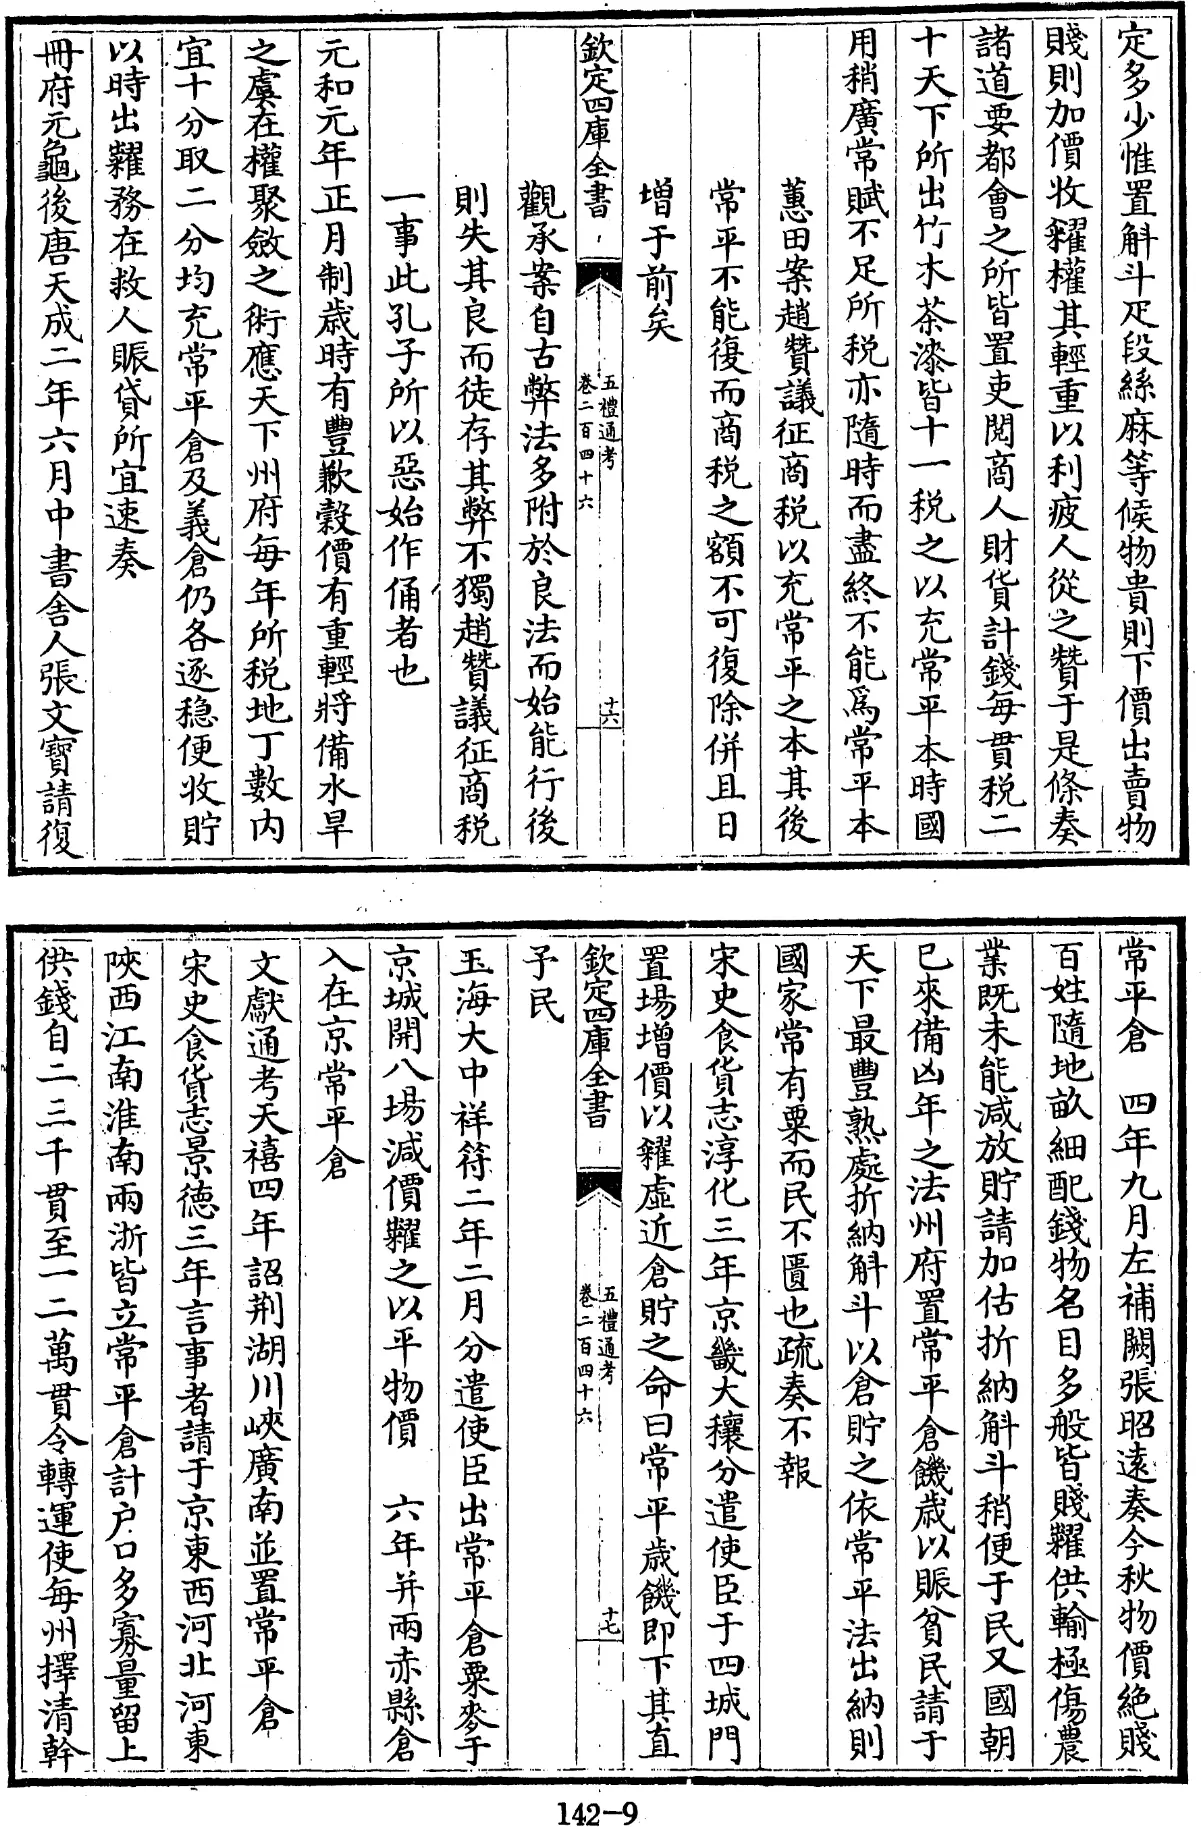 定多少惟置斛斗疋段絲麻等候物貴則下價出賣物
賤則加價收糴權其輕重以利疲人從之贊于是條奏
諸道要都會之所皆置吏閱商人財貨計錢每貫税二
十天下所出竹木茶漆皆十一税之以充常平本時國
用稍廣常賦不足所税亦隨時而盡終不能爲常平本
蕙田案趙贊議征商税以充常平之本其後
常平不能復而商税之額不可復除併且日
増于前矣
欽定四庫全書
五禮通考
卷二百四十六
十六
觀承案自古弊法多附於良法而始能行後
則失其良而徒存其弊不獨趙贊議征商税
一事此孔子所以惡始作俑者也
元和元年正月制歳時有豐歉穀價有重輕將備水旱
之虞在權聚斂之術應天下州府每年所税地丁數内
宜十分取二分均充常平倉及義倉仍各逐穏便收貯
以時出糶務在救人賑貸所宜速奏
冊府元龜後唐天成二年六月中書舍人張文寳請復
常平倉　四年九月左補闕張昭遠奏今秋物價絶賤
百姓隨地畝細配錢物名目多般皆賤糶供輸極傷農
業既未能減放貯請加估折納斛斗稍便于民又國朝
已來備凶年之法州府置常平倉饑歳以賑貧民請于
天下最豐熟處折納斛斗以倉貯之依常平法出納則
國家常有粟而民不匱也疏奏不報
宋史食貨志淳化三年京畿大穰分遣使臣于四城門
置場增價以糴虛近倉貯之命曰常平歳饑即下其直
欽定四庫全書
五禮通考
卷二百四十六
十七
予民
玉海大中祥符二年二月分遣使臣出常平倉粟麥于
京城開八場減價糶之以平物價　六年并兩赤縣倉
入在京常平倉
文獻通考天禧四年詔荆湖川峽廣南並置常平倉
宋史食貨志景德三年言事者請于京東西河北河東
陜西江南淮南兩浙皆立常平倉計户口多寡量留上
供錢自二三千貫至一二萬貫令轉運使每州擇清幹
142-9